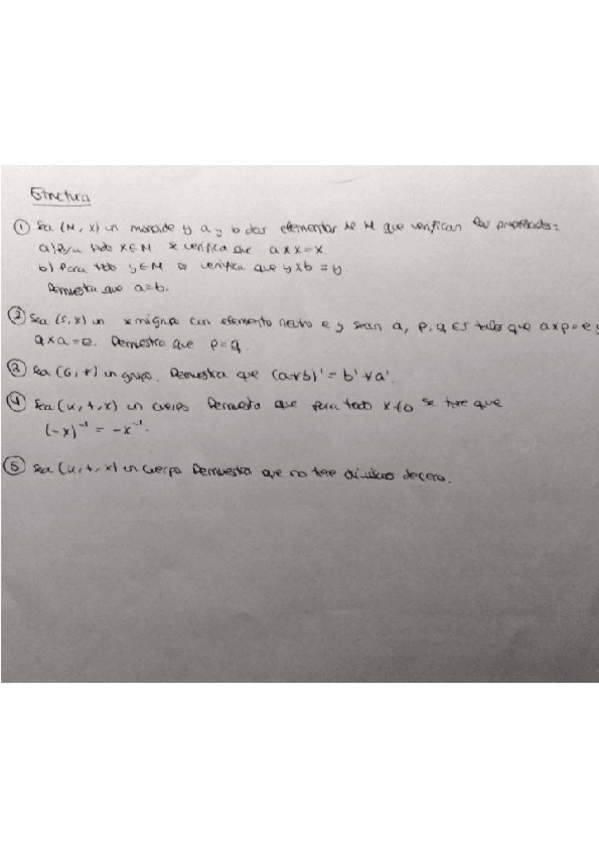 Estructura
① Sea (M, x) un monoide y a y b dos elementos de M que verifican las propiedades:
a) Para todo x∈M se verifica que a x x = x
b) Para todo y∈M se verifica que y x b = y.
Demuestra que a=b.
② Sea (S, x) un semigrupo con elemento neutro e y sean a, p, q ∈ S tales que a x p = e y
q x a = e. Demuestra que p = q.
③ Sea (G, *) un grupo. Demuestra que (a*b)' = b' * a'.
④ Sea (K, +, x) un cuerpo Demuestra que para todo x≠0 se tiene que
(-x)⁻¹ = -x⁻¹.
⑤ Sea (K, +, x) un cuerpo Demuestra que no tiene divisores de cero.